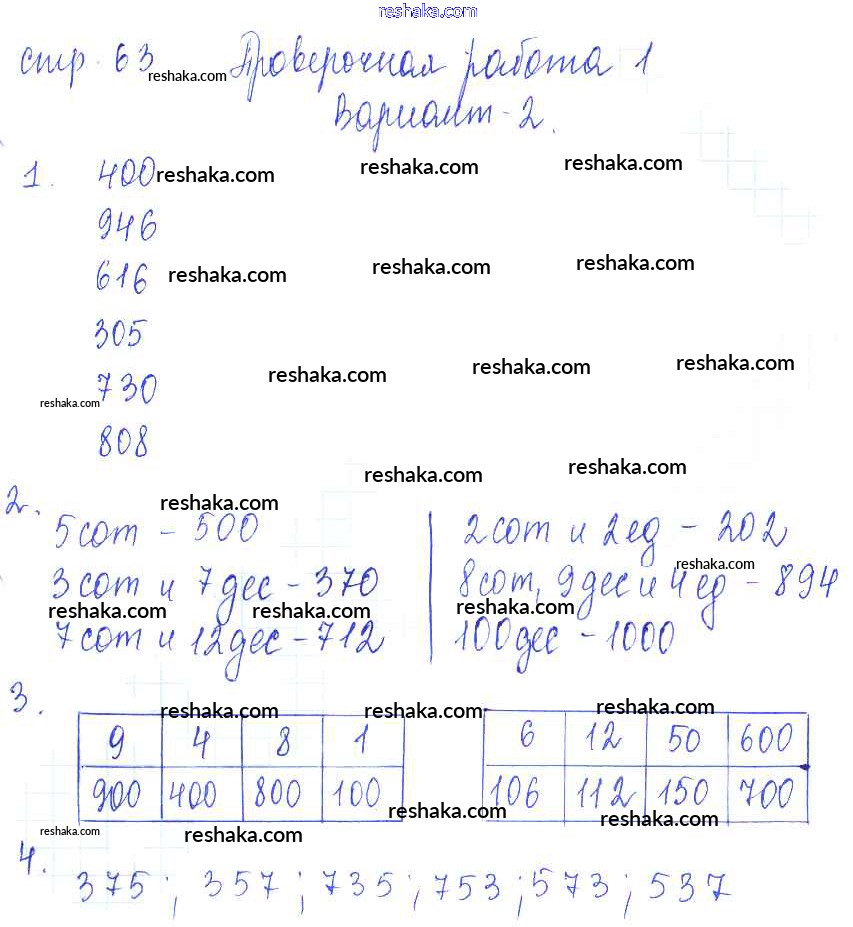 reshaka.com
стр. 63 reshaka.com Проверочная работа 1
Вариант-2.
1. 400 reshaka.com reshaka.com reshaka.com
946
616 reshaka.com reshaka.com reshaka.com
305
reshaka.com reshaka.com reshaka.com
reshaka.com 730
808
reshaka.com reshaka.com
2. reshaka.com
5 сот - 500 2 сот и 2 ед - 202
reshaka.com
3 сот и 7 дес - 370 8 сот, 9 дес и 4 ед - 894
reshaka.com reshaka.com reshaka.com
7 сот и 12 дес - 712 100 дес - 1000
3. reshaka.com reshaka.com reshaka.com
9 4 8 1 6 12 50 600
900 400 800 100 106 112 150 700
reshaka.com reshaka.com
reshaka.com reshaka.com
4. 375; 357; 735; 753; 573; 537